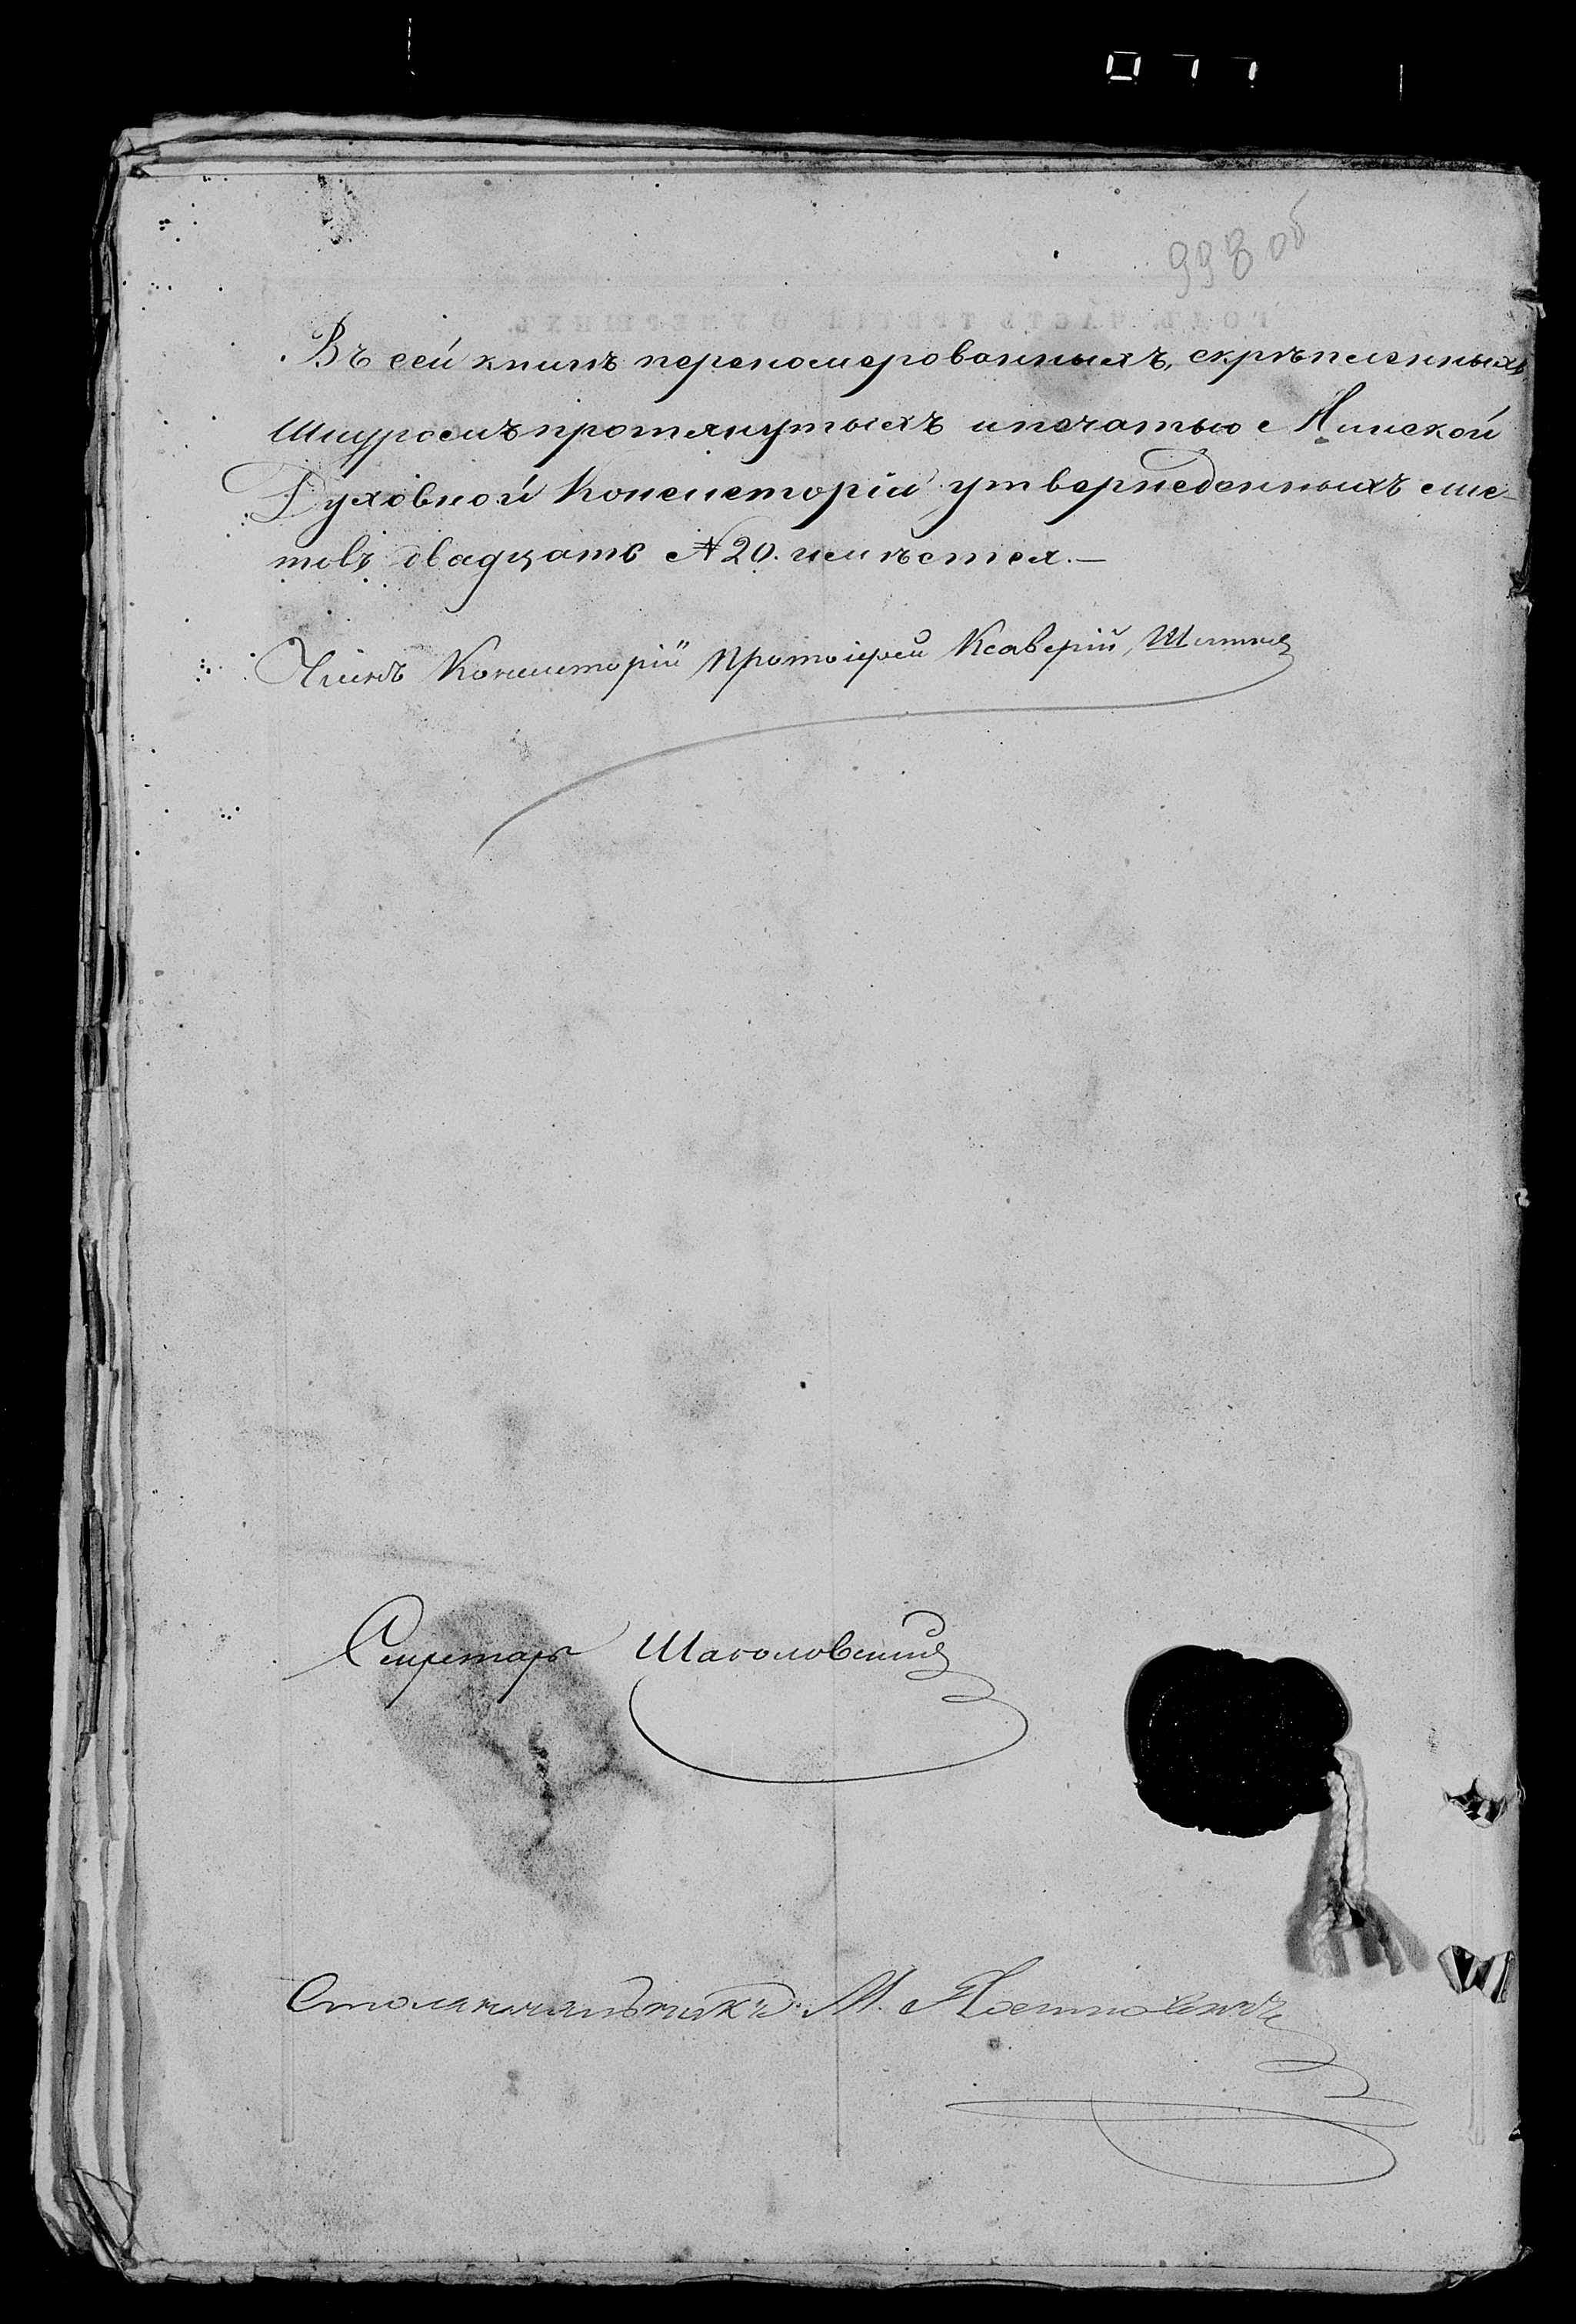 077
998 об
ГОДЪ, ЧАСТЬ ТРЕТІЯ О УМЕРШИХЪ.
Въ сей книгѣ переномерованныхъ, скрѣпленныхъ,
Шнуромъ протянутыхъ и печатью Минской
Духовной Консисторіи утвержденныхъ лис-
товъ двадцать № 20. имѣется.—
Членъ Консисторіи Протоіерей Ксаверій
Секретарь
Столоначальникъ М.